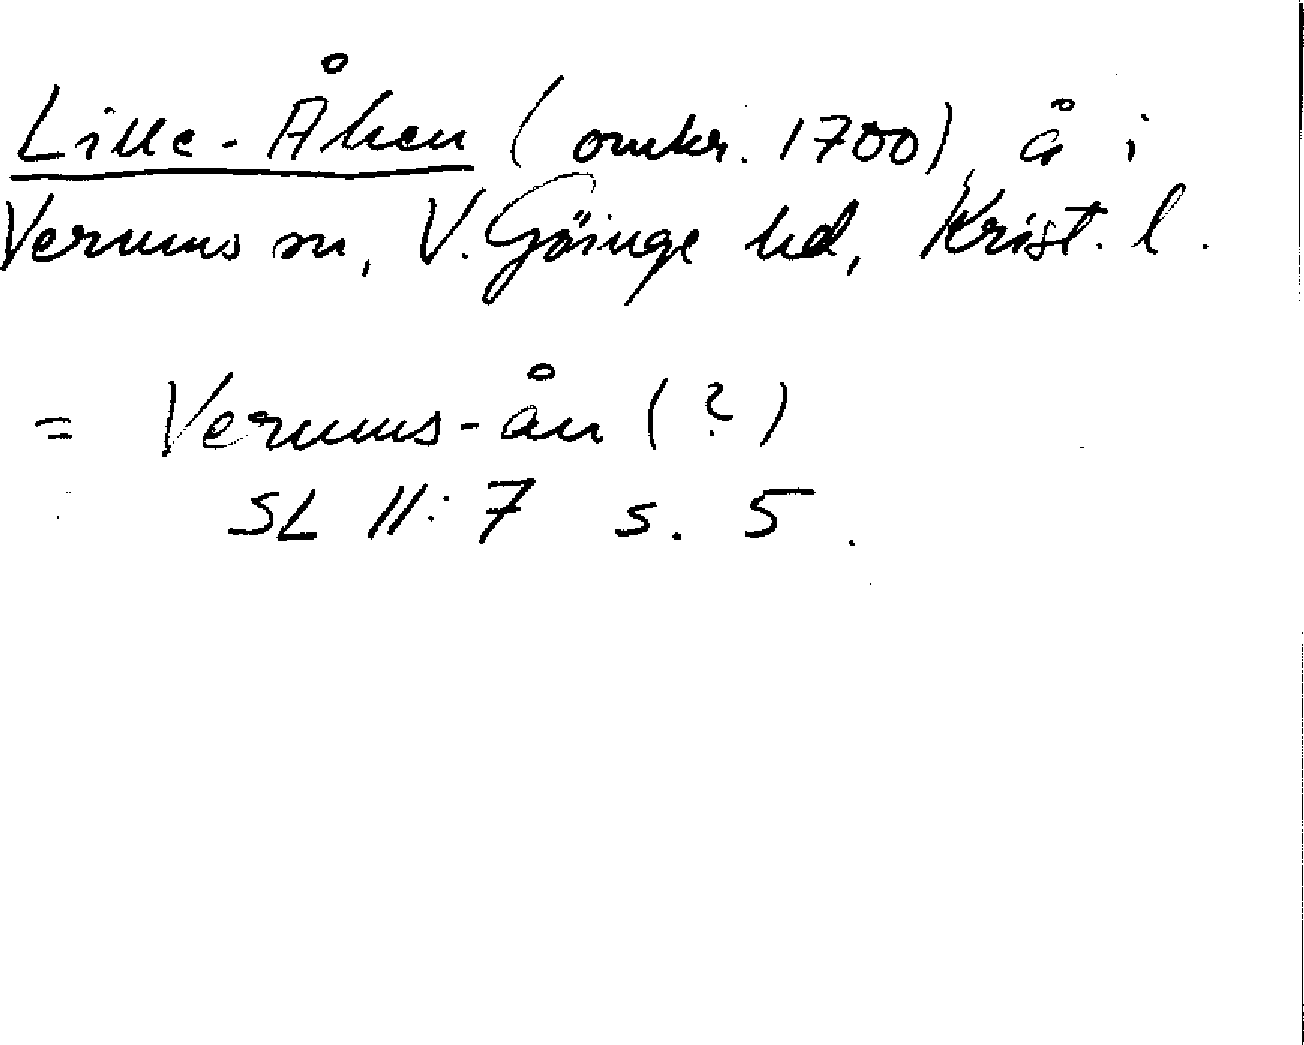 Lille-Åhen (omkr. 1700), å i
Verums sn, V. Göinge hd, Krist. l.
= Verums-ån (?)
SL II: 7 s. 5.